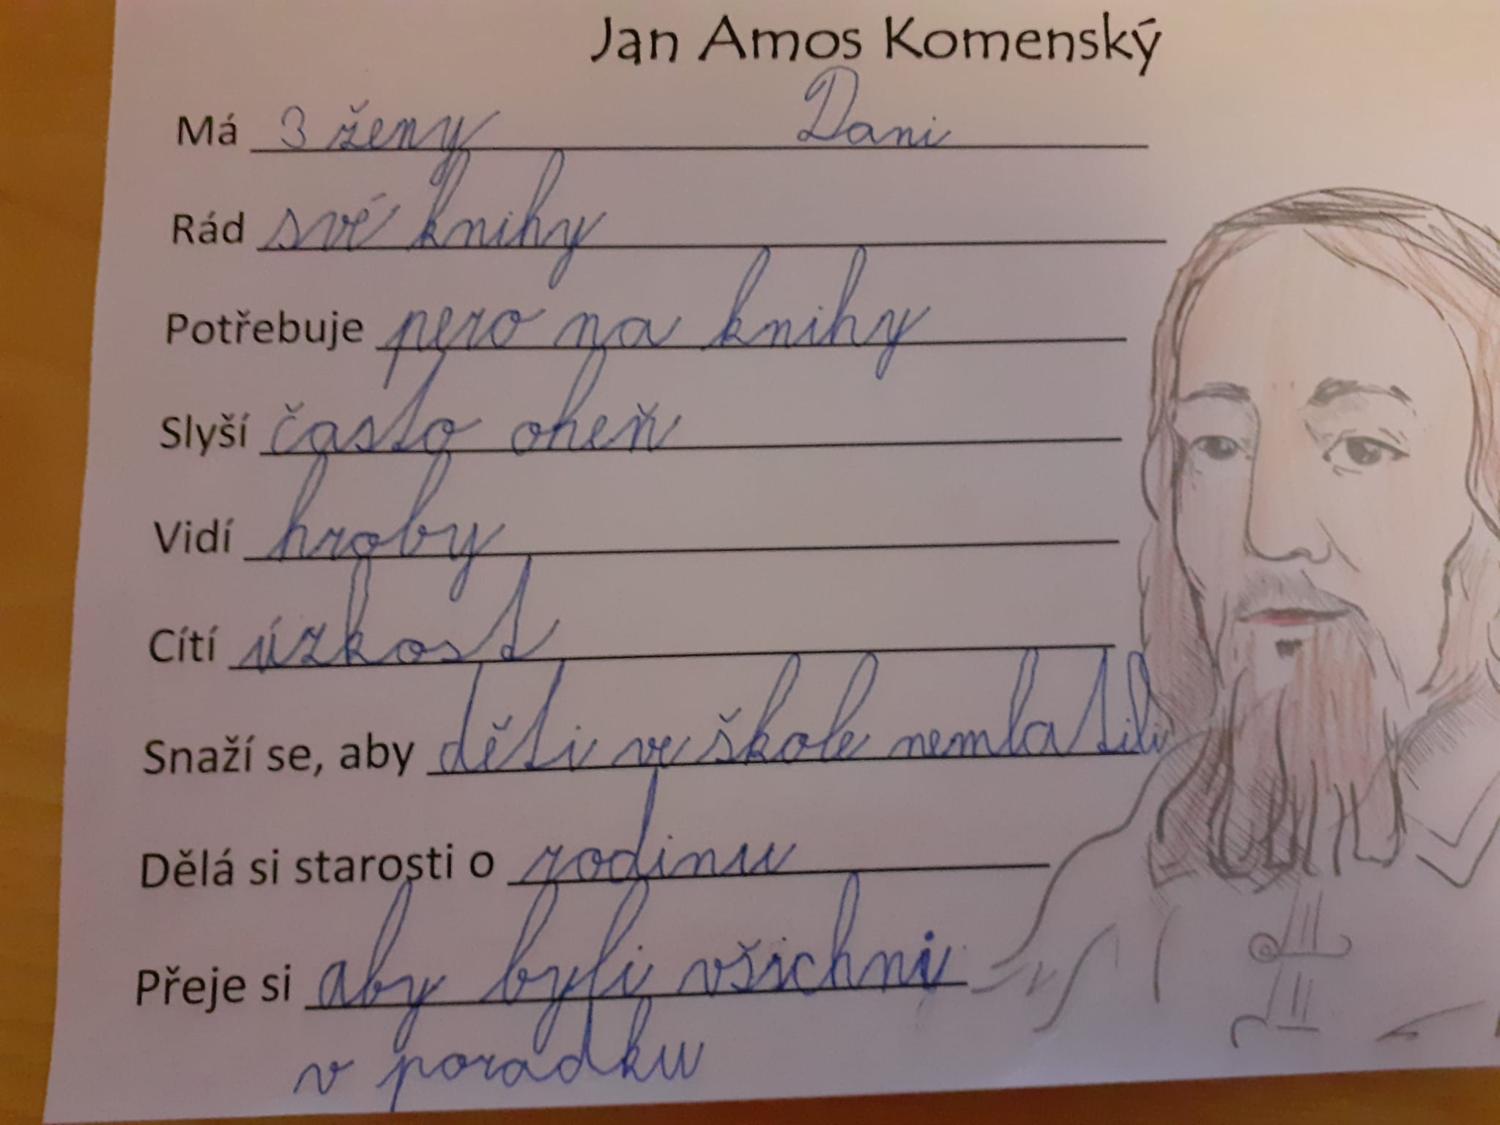 Jan Amos Komenský
Má 3 ženy Dani
Rád své knihy
Potřebuje pero na knihy
Slyší často oheň
Vidí hroby
Cítí úzkost
Snaží se, aby děti ve škole nemlatili
Dělá si starosti o rodinu
Přeje si aby byli všichni
v poradku